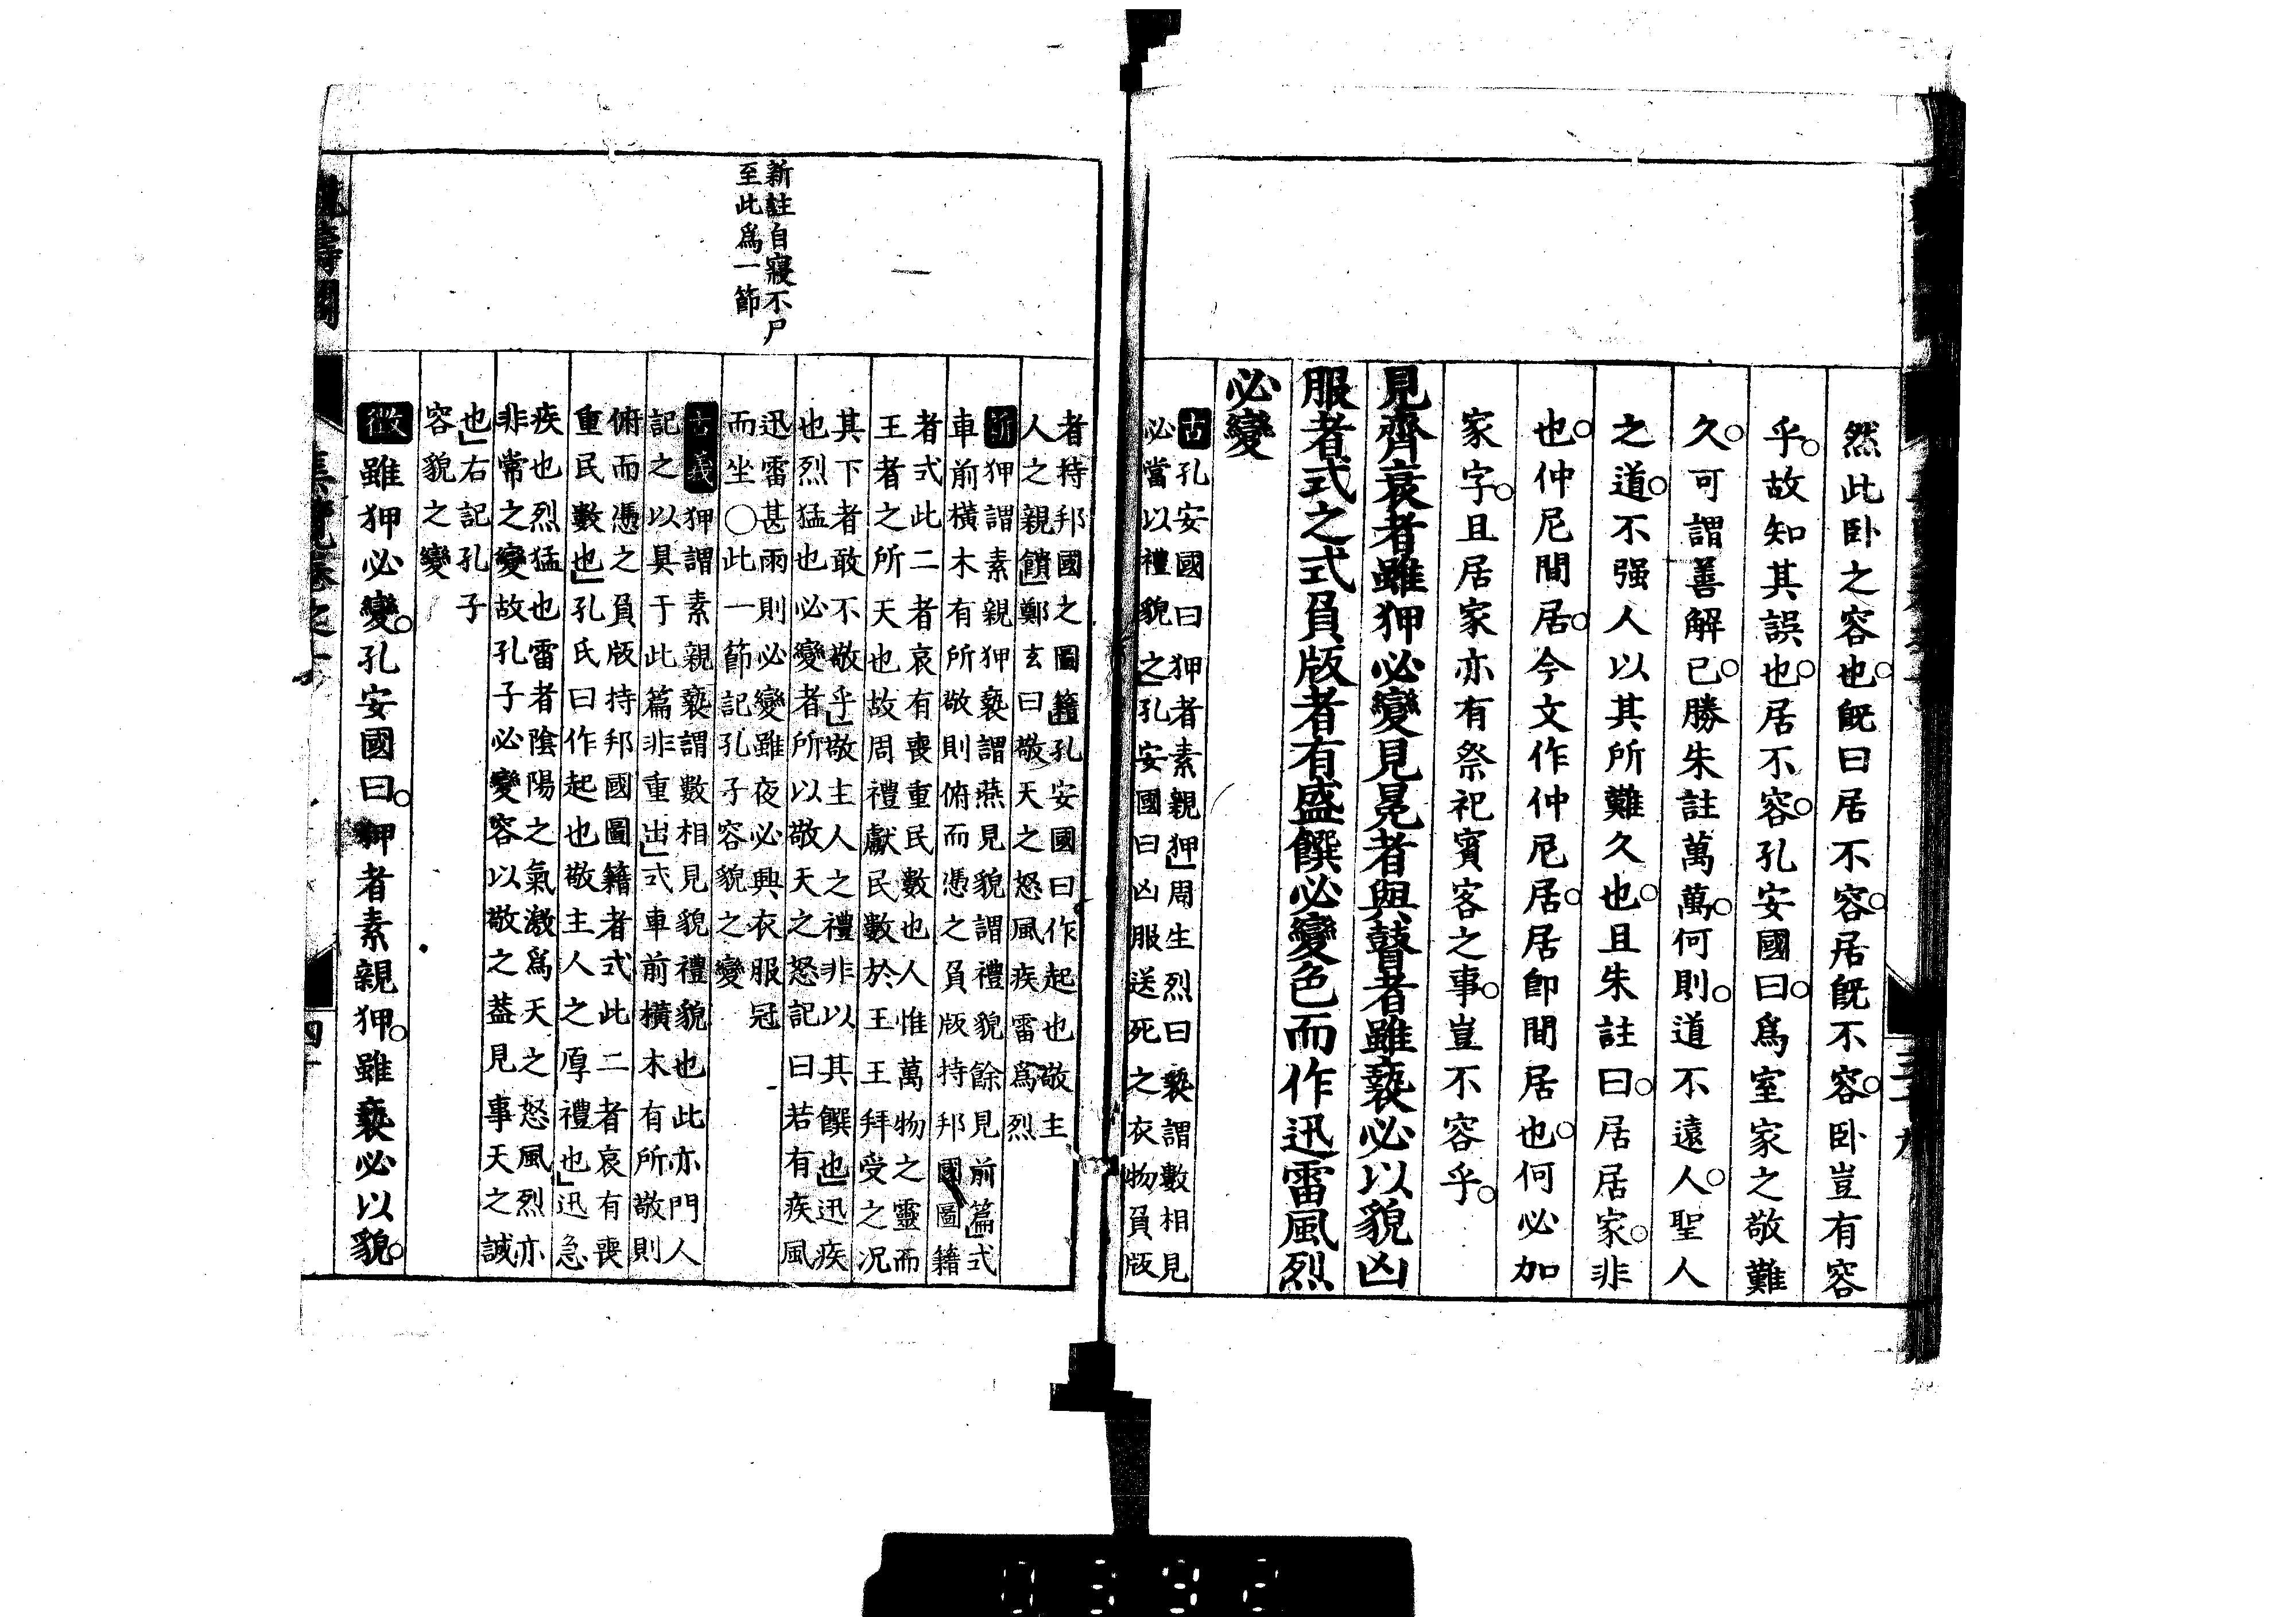 然此卧之容也○既曰居不容○居既不容○卧豈有容
乎○故知其誤也○居不容○孔安國曰○爲室家之敬難
久○可謂善解已○勝朱註萬萬○何則○道不遠人○聖人
之道○不强人以其所難久也○且朱註曰○居居家○非
也○仲尼間居○今文作仲尼居○居卽間居也○何必加
家字○且居家亦有祭祀賓客之事○豈不容乎○
見齊衰者雖狎必變見冕者與瞽者雖褻必以貌凶
服者式之式負版者有盛饌必變色而作迅雷風烈
必變
古孔安國曰狎者素親狎」周生烈曰褻謂數相見
必當以禮貌之」孔安國曰凶服送死之衣物負版
者持邦國之圖籍」孔安國曰作起也敬主
人之親饋」鄭玄曰敬天之怒風疾雷爲烈
新狎謂素親狎褻謂燕見貌謂禮貌餘見前篇」式
車前橫木有所敬則俯而憑之負版持邦國圖籍
者式此二者哀有喪重民數也人惟萬物之靈而
王者之所天也故周禮獻民數於王王拜受之况
其下者敢不敬乎」敬主人之禮非以其饌也」迅疾
也烈猛也必變者所以敬天之怒記曰若有疾風
迅雷甚雨則必變雖夜必興衣服冠
而坐○此一節記孔子容貌之變
古義狎謂素親褻謂數相見貌禮貌也此亦門人
記之以具于此篇非重出」式車前橫木有所敬則
俯而憑之負版持邦國圖籍者式此二者哀有喪
重民數也」孔氏曰作起也敬主人之厚禮也」迅急
疾也烈猛也雷者陰陽之氣激爲天之怒風烈亦
非常之變故孔子必變容以敬之蓋見事天之誠
也」右記孔子
容貌之變
徵雖狎必變○孔安國曰○狎者素親狎○雖褻必以貌○
新註自寢不尸
至此爲一節
四十
0392